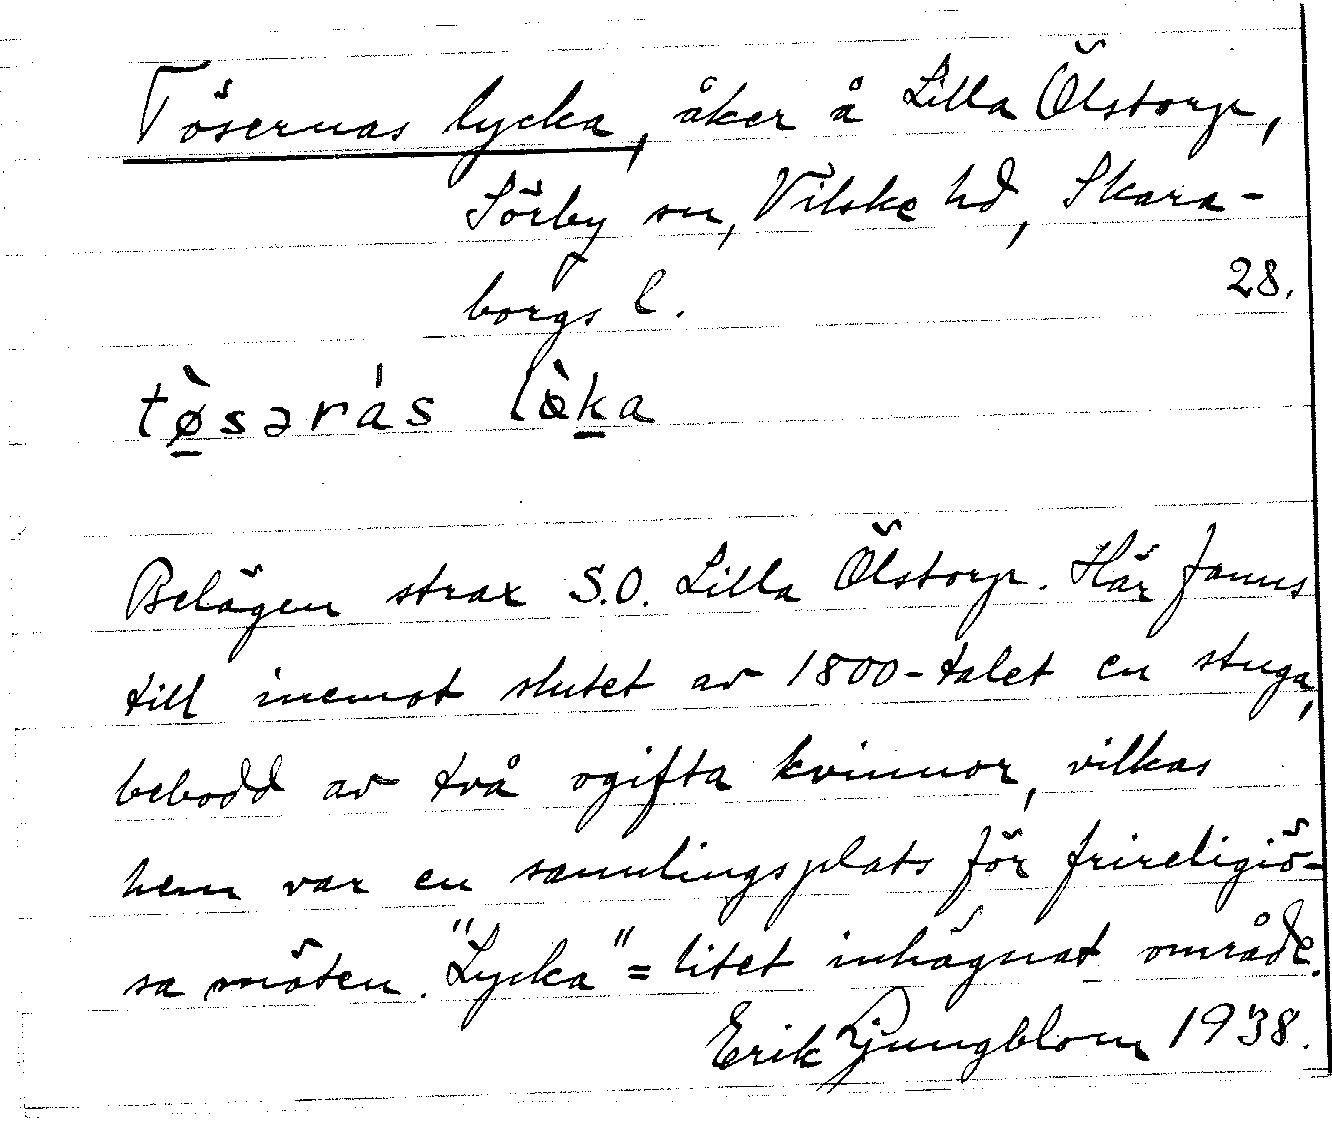 Tösernas lycka, åker å Lilla Ölstorp,
Sörby sn, Vilske hd, Skara-
borgs l.
28.
tø̲̀sərás lø̀k̲a
Belägen strax S.O. Lilla Ölstorp. Här fanns
till inemot slutet av 1800-talet en stuga,
bebodd av två ogifta kvinnor, vilkas
hem var en samlingsplats för frireligiö-
sa möten. "Lycka" = litet inhägnat område.
Erik Ljungblom 1938.